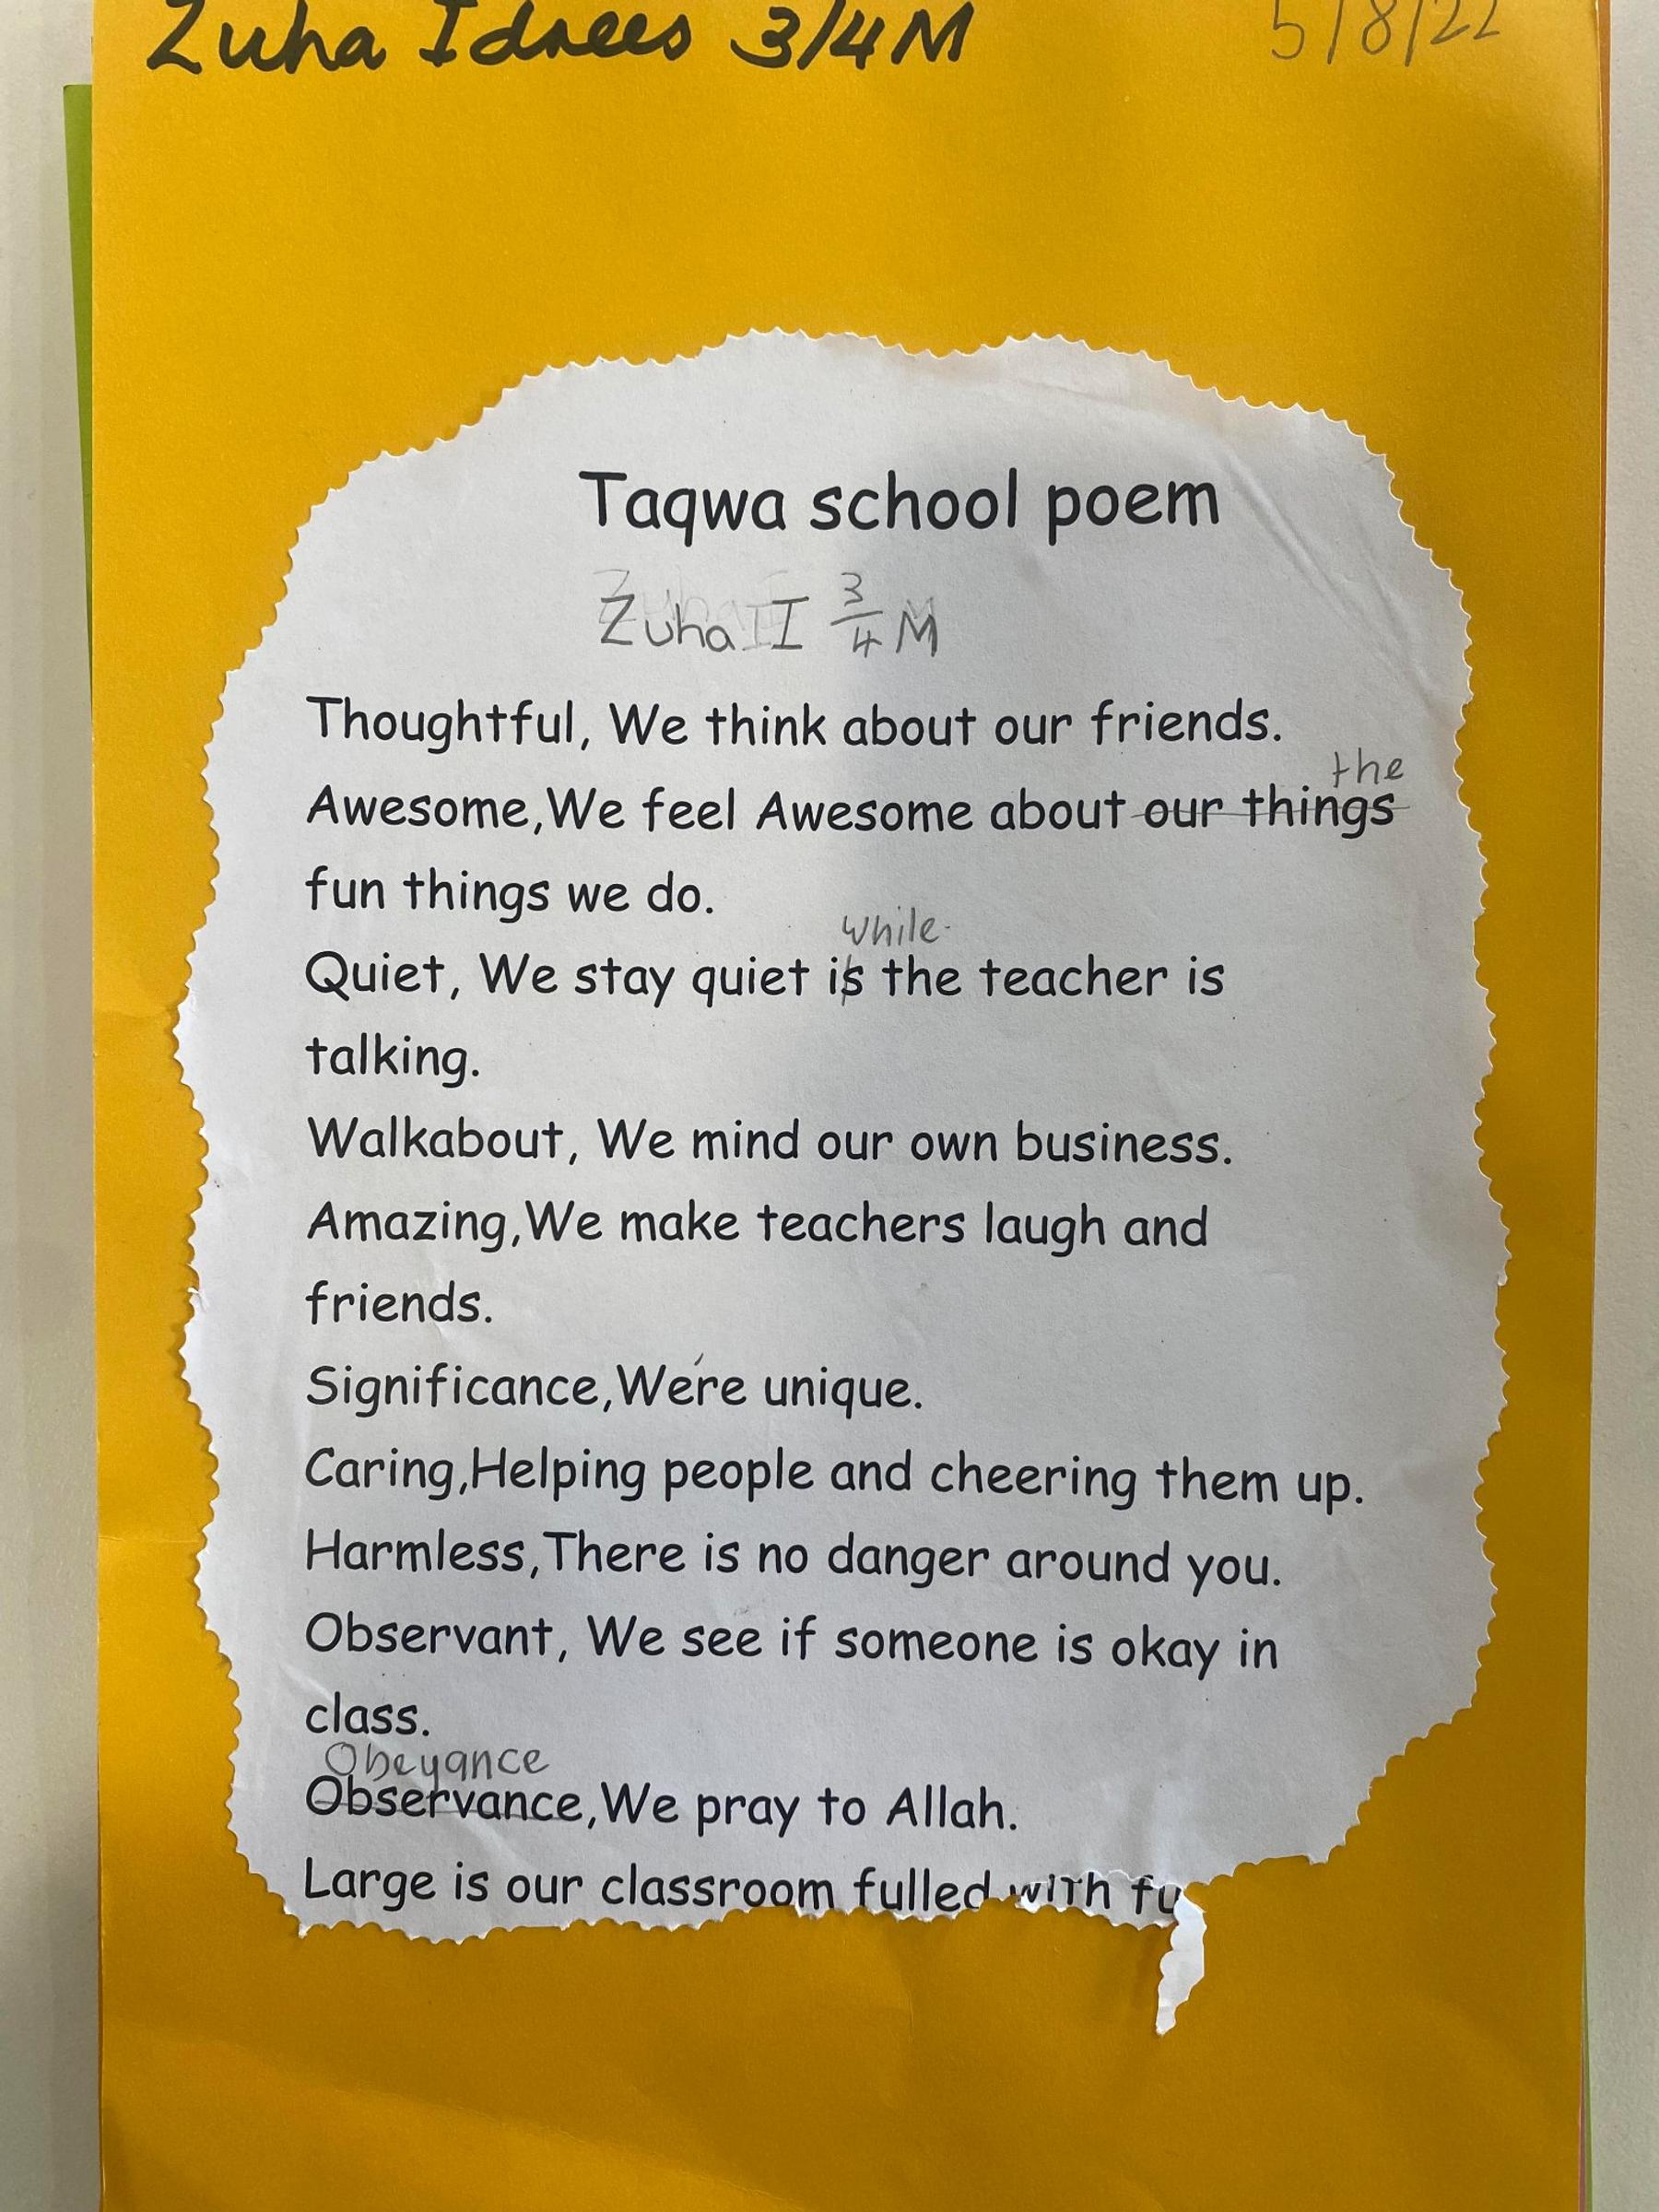 Zuha Idrees 3/4M 5/8/22
Taqwa school poem
Zuha I 3/4 M
Thoughtful, We think about our friends.
the
Awesome,We feel Awesome about our things
fun things we do.
while
Quiet, We stay quiet is the teacher is
talking.
Walkabout, We mind our own business.
Amazing,We make teachers laugh and
friends.
Significance,We're unique.
Caring,Helping people and cheering them up.
Harmless,There is no danger around you.
Observant, We see if someone is okay in
class.
Obeyance
Observance,We pray to Allah.
Large is our classroom fulled with